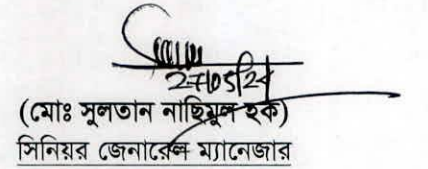 27/05/24
(মোঃ সুলতান নাছিমুল হক)
সিনিয়র জেনারেল ম্যানেজার